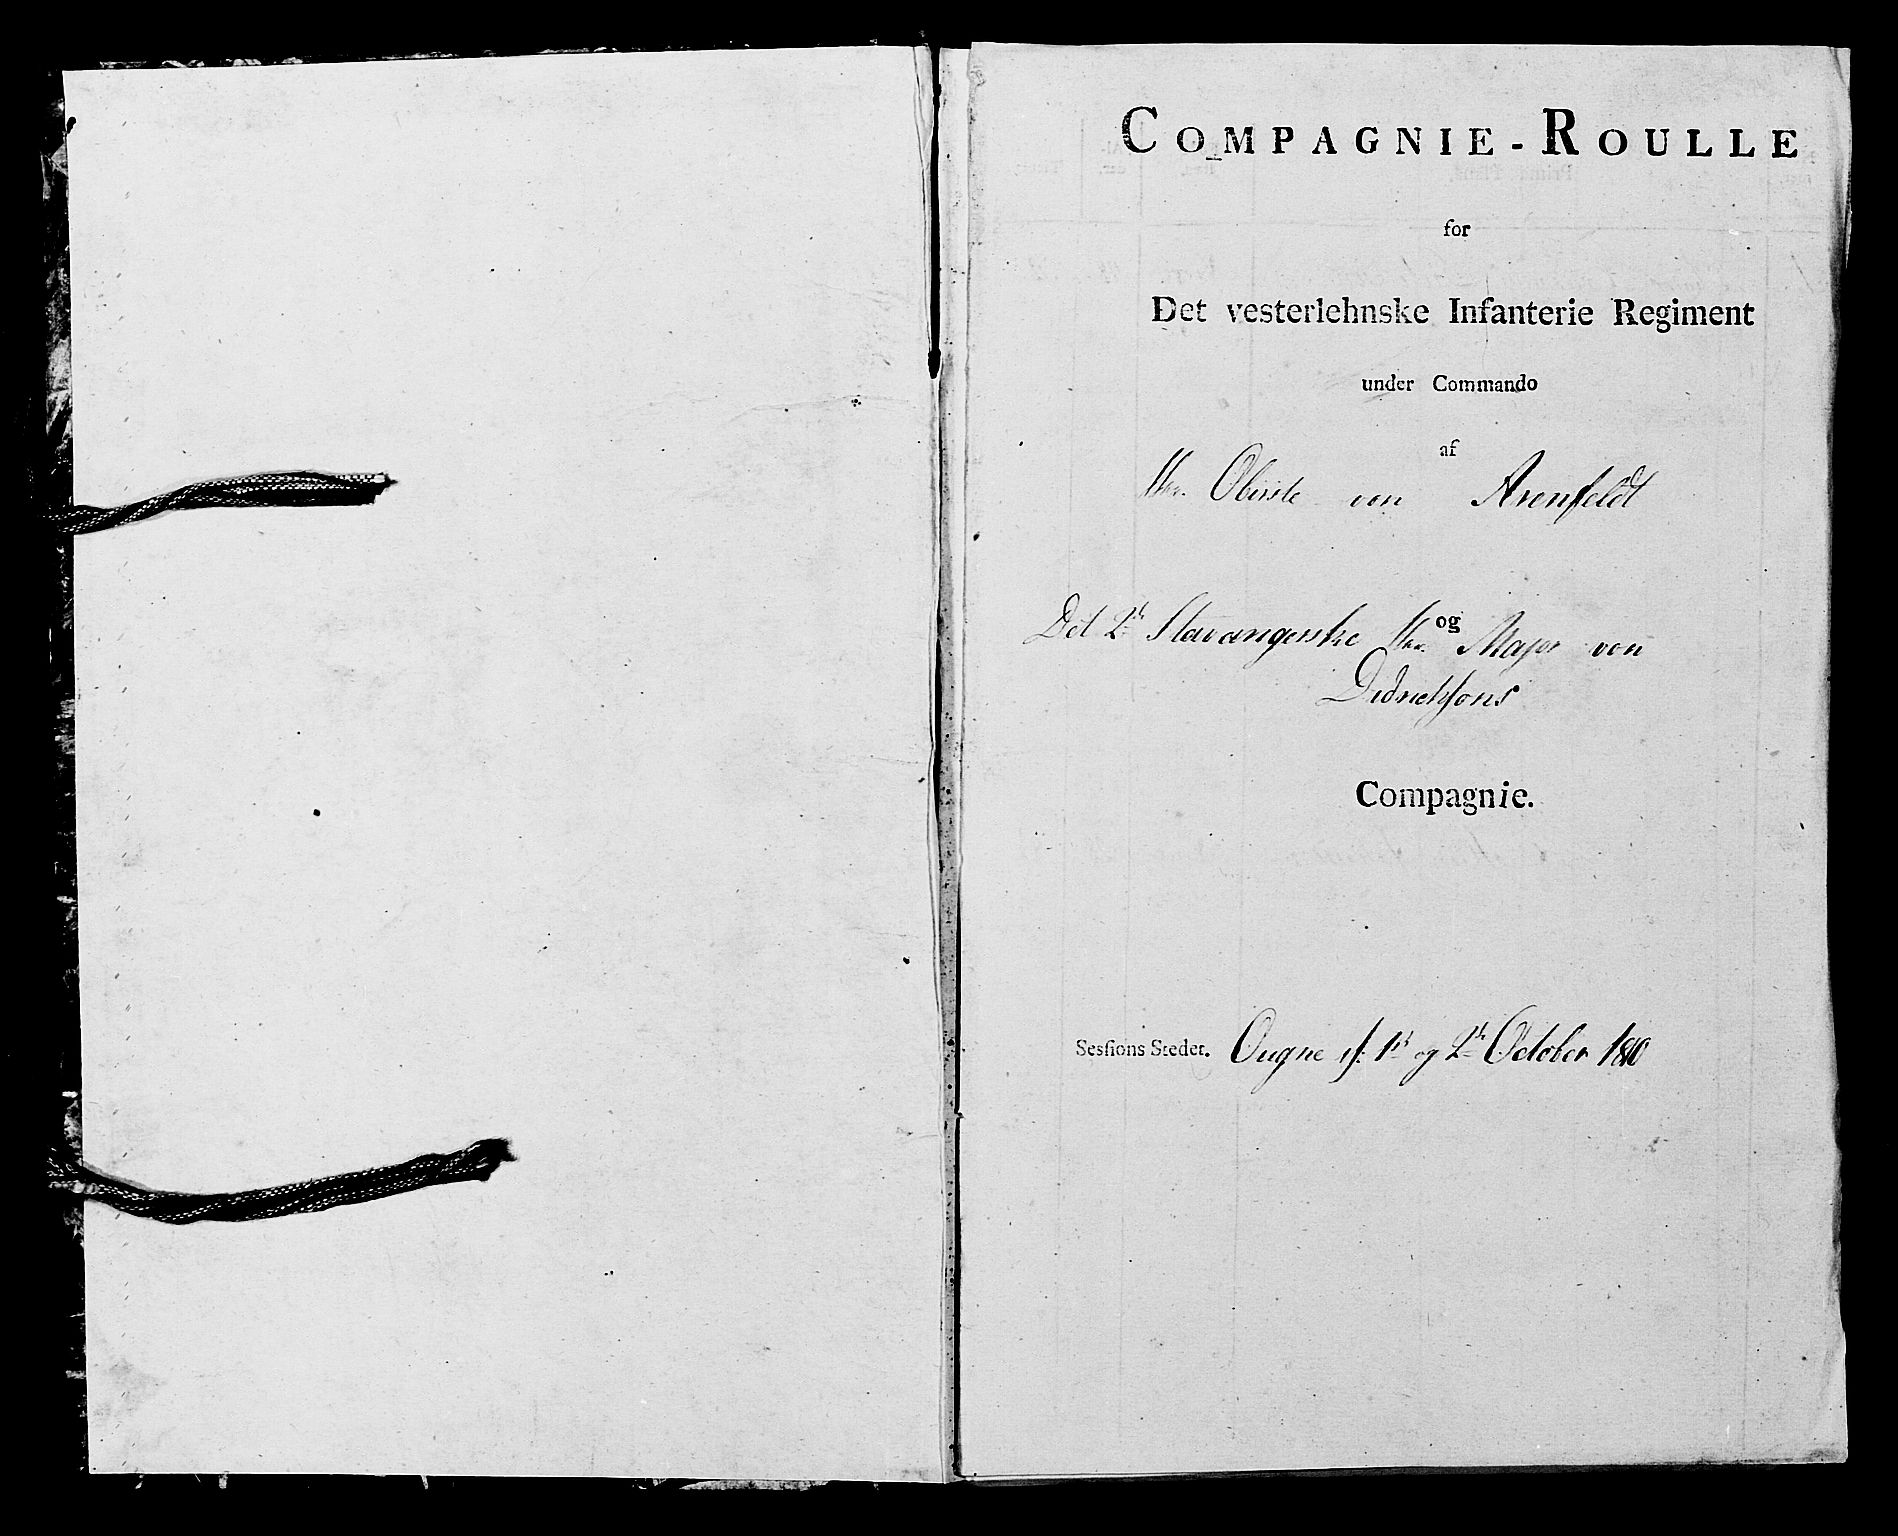 COMPAGNIE-ROULLE
for
Det vesterlehnske Infanterie Regiment
under Commando
af
Hr. Obriste von Arenfeldt
og
Det 2de Stavangerske Hr. Major von
Didrichsons
Compagnie.
Sessions Steder. Ougne d: 1st og 2de October 1810